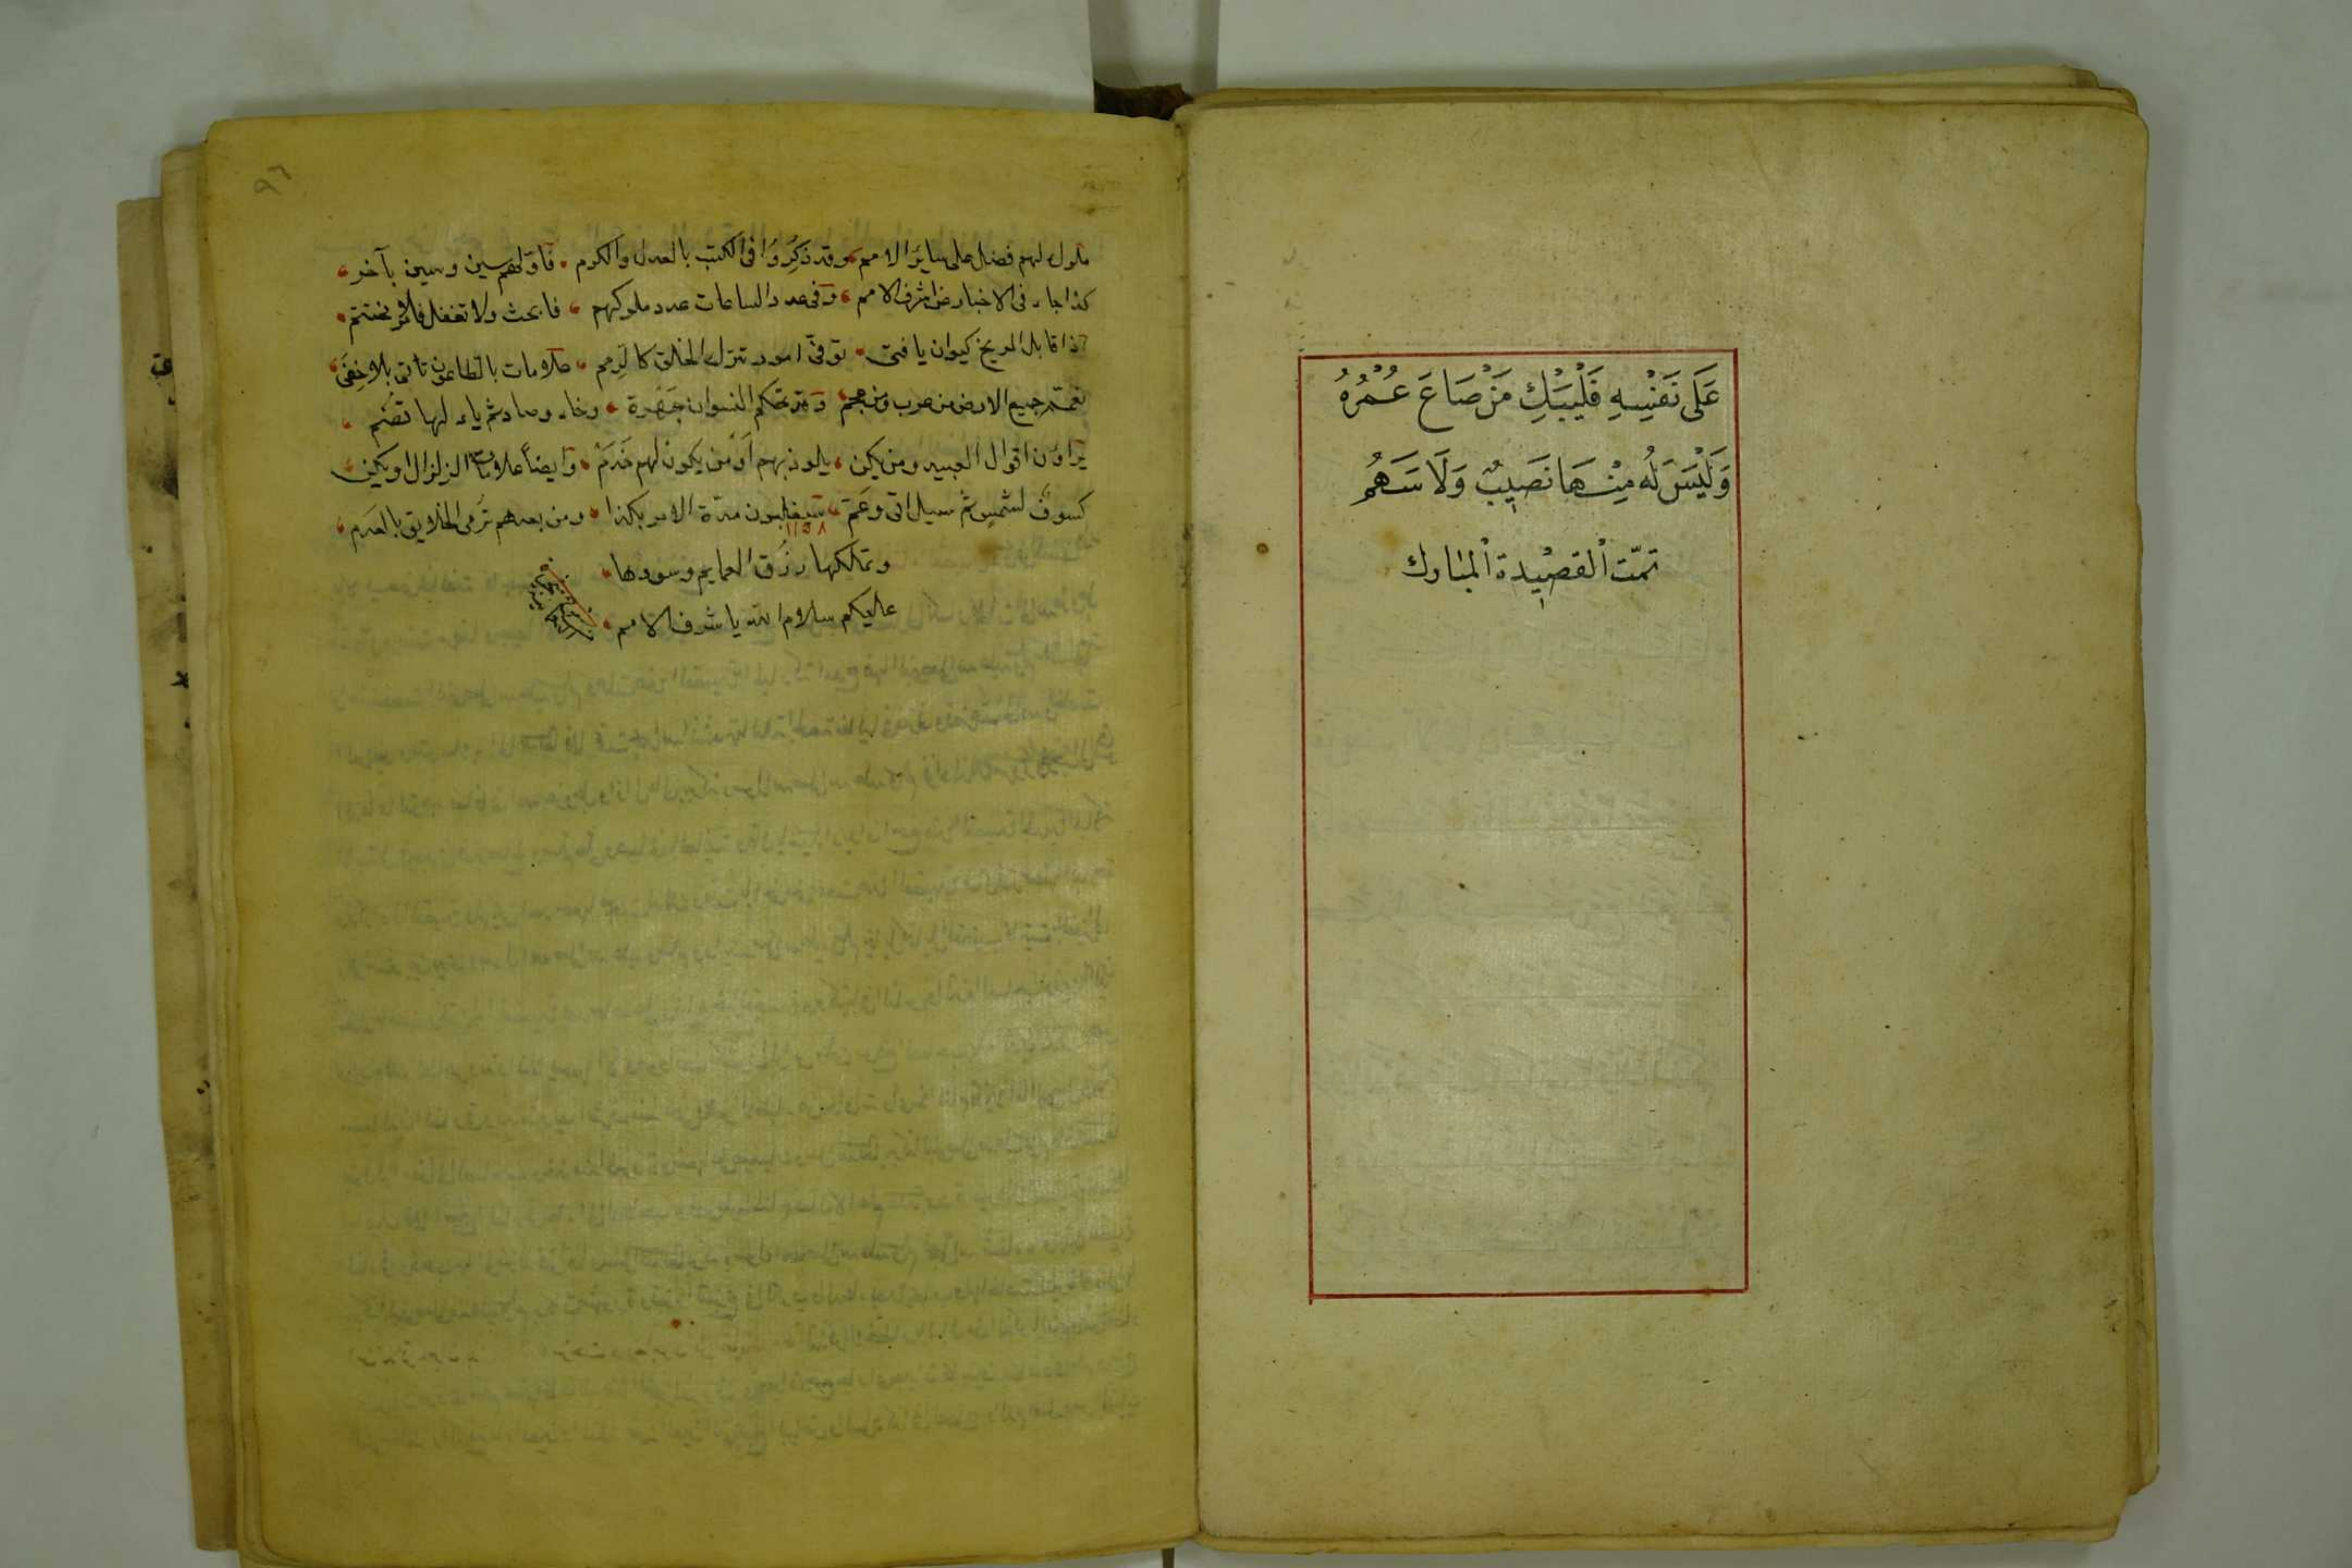 عَلَى نَفْسِهِ فَلْيَبْكِ مَنْ ضَاعَ عُمْرُهُ
وَلَيْسَ لَهُ مِنْهَا نَصِيبٌ وَلَا سَهْمُ
تمّت القصيدة المبارك
٩٦
ملوك لهم فضل على سائر الامم وقد ذُكِرُوا فى الكتب بالعدل والكرم فاولهم سين وسين بآخر
كذا جاء فى الاخبار عن اشرف الامم وفى عدد الساعات عدد ملوكهم فابحث ولا تغفل فالامر مختتم
اذا قابل المريخ كيوان يا فتى توقّى امور تترك الخلق كالرمم علامات بالطاعون تأتى بلا خفى
تعمّ جميع الارض من عرب ومن عجم وتحكم النسوان جهرة وخاء وصاد ثم ياء لها تضم
اقوال العبيد ومن يكن يلوذ بهم اومن يكون لهم خدم وايضاً علامات الزلزال او يكن
كسوف لشمس ثم سيل اتى وعَمّ سيغلبون مدة الامر بكذا ومن بعدهم ترمى الخلايق بالعدم
١١٥٨
وتملكها رزق العمايم وسودها
عليكم سلام الله يا اشرف الامم